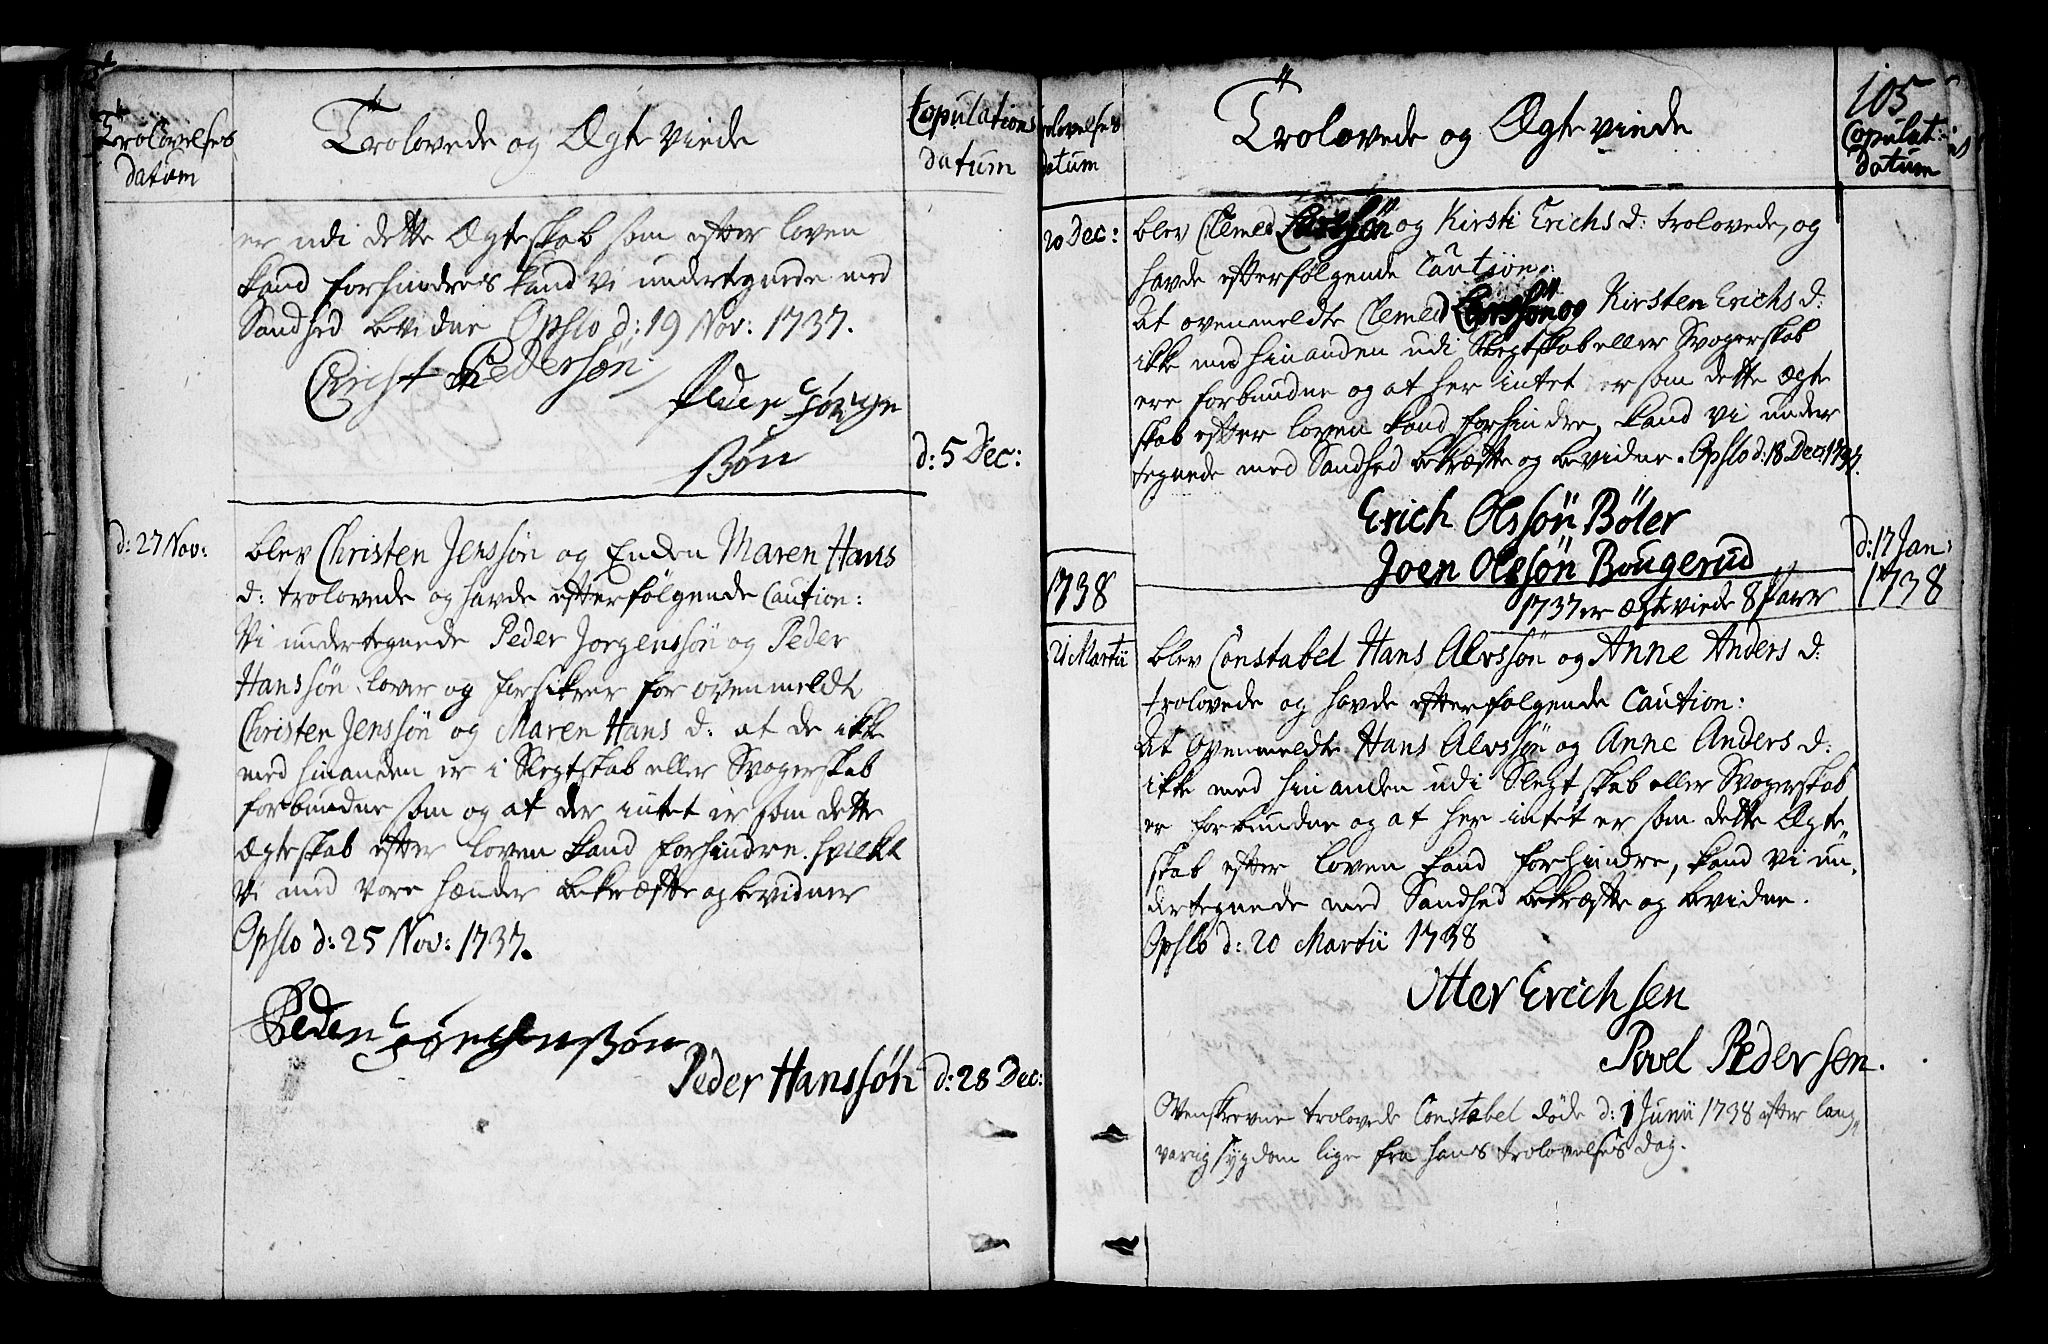 Trolovelses
datum
Trolovede og Ægte Viede
Copulations
datum
er udi dette Ægteskab som efter loven
kand forhindres kand vi undertegnede med
Sandhed bevidne Opslo d: 19 Nov: 1737.
Christ Pedersøn
Peder Jørgen
ßøn
d: 5 Dec:
d: 27 Nov:
blev Christen Jenssøn og Enden Maren Hans
d: trolovede og havde efterfølgende Caution:
Vi undertegnede Peder Jørgenssøn og Peder
Hanssøn lover og forsikrer for ovenmeldte
Christen Jenssøn og Maren Hans d: at de ikke
med hinanden er i Slegtskab eller Svogerskab
forbundne som og at der intet er som dette
Ægteskab efter loven kand forhindre. hvilket
Vi med Vore hænder bekræfte og bevidner
Opslo d: 25 Nov: 1737.
Peder Jørgenßøn
Peder Hanssøn
d: 28 Dec:
Trolovelses
datum
Trolovede og Ægte viede
105
Copulat:
datum
20 Dec:
blev Clemed Larssøn og Kirsti Erichs d: trolovede, og
havde efterfølgende Caution:
At ovenmeldte Clemed Larssøn og Kirsten Erichs d:
ikke med hinanden udi Slegtskab eller Svogerskab
ere forbundne og at her intet er som dette Ægte
skab efter loven kand forhindre, kand vi under
tegnede med Sandhed bekræfte og bevidne. Opslo d: 18 Dec: 1737.
Erich Olssøn Bøler
Joen Olssøn Bougerud
d: 17 Jan:
1738
1738
1737 er Ægteviede 8 Parr
21 Martii
blev Constabel Hans Alvssøn og Anne Anders d:
trolovede og havde efterfølgende Caution:
At Ovenmeldte Hans Alvssøn og Anne Anders d:
ikke med hinanden udi Slegtskab eller Svogerskab
er forbundne og at her intet er som dette Ægte
skab efter loven kand forhindre, kand vi un
dertegnede med Sandhed bekræfte og bevidne.
Opslo d: 20 Martii 1738
Otter Erichsen
Povel Pedersen.
Ovenskrevne trolovede Constabel døde d: 1 Junii 1738 efter lang
varig sygdom lige fra hans trolovelses dag.